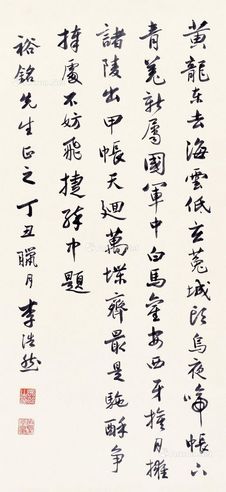 黄龍东去海雲低玄菟城頭烏夜啼帳下
青羌新屬國軍中白馬舊安西牙月擁
諸陵出甲帳天迴萬堞齊最是駝酥争
捧處不妨飛捷醉中題
裕銘先生正之 丁丑臘月 李浩然